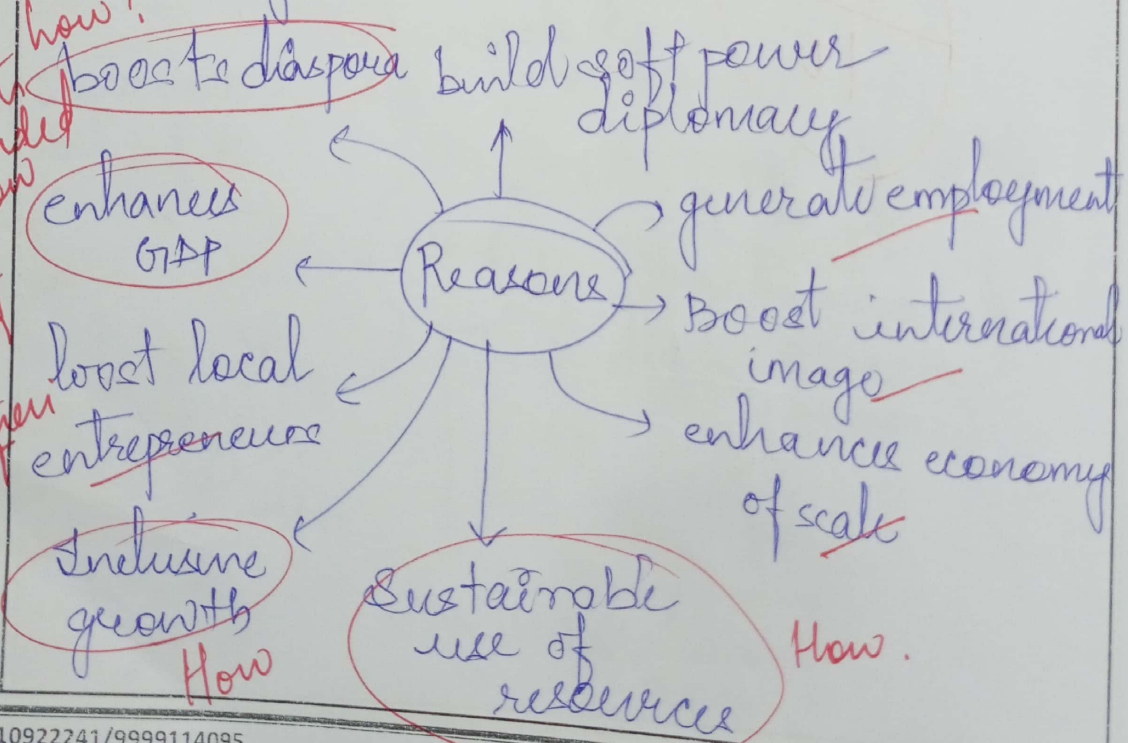 how?
boosts diaspora
build soft power
diplomacy
enhances
GDP
generate employment
Reasons
Boost international
image
boost local
entrepreneurs
enhances economy
of scale
Inclusive
growth
How
Sustainable
use of
resources
How.
10922241/9999114095